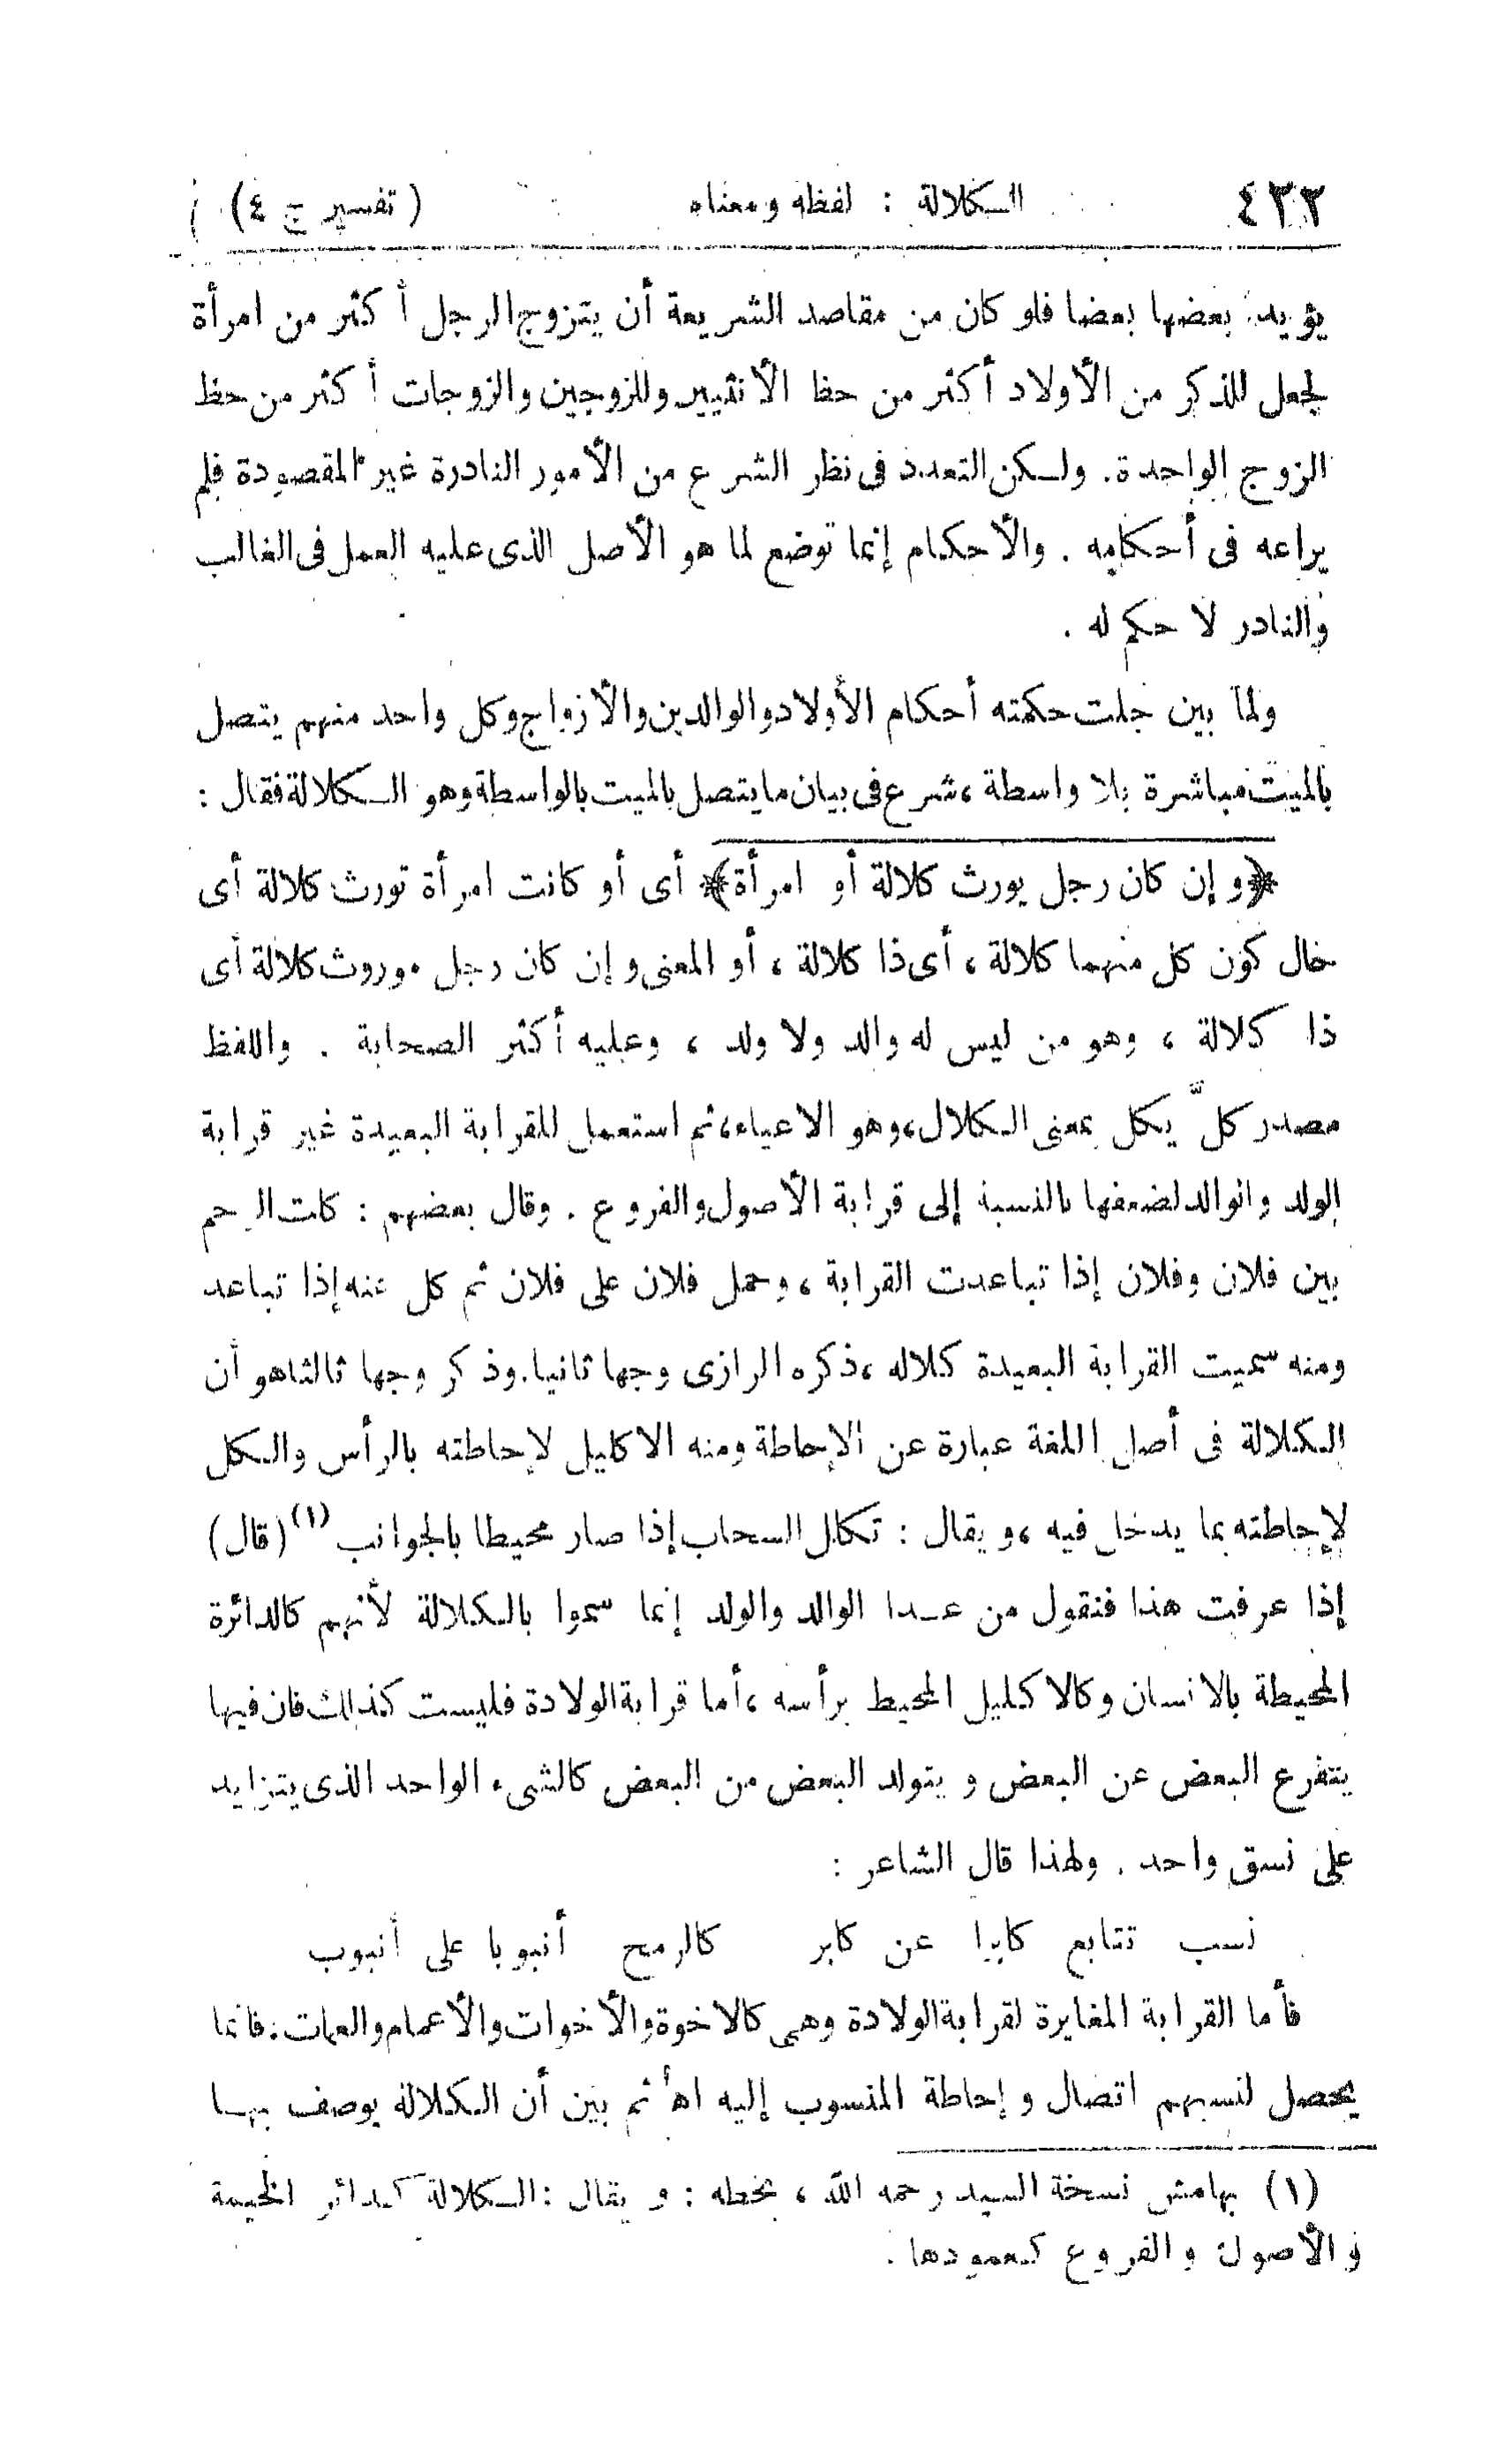 ٤٢٢ الكلالة : لفظه ومعناه (تفسير ج ٤)
يؤيد بعضها بعضا فلو كان من مقاصد الشريعة أن يتزوج الرجل أكثر من امرأة
لجعل للذكر من الأولاد أكثر من حظ الأنثيين وللزوجين والزوجات أكثر من حظ
الزوج الواحدة. ولكن التعدد فى نظر الشرع من الأمور النادرة غير المقصودة فلم
يراعه فى أحكامه . والأحكام إنما توضع لما هو الأصل الذى عليه العمل فى الغالب
والنادر لا حكم له .
ولما بين جلت حكمته أحكام الأولاد والوالدين والأزواج وكل واحد منهم يتصل
بالميت مباشرة بلا واسطة ، شرع فى بيان ما يتصل بالميت بالواسطة وهو الكلالة فقال :
﴿وإن كان رجل يورث كلالة أو امرأة﴾ أى أو كانت امرأة تورث كلالة أى
حال كون كل منهما كلالة ، أى ذا كلالة ، أو المعنى وإن كان رجل موروث كلالة أى
ذا كلالة ، وهو من ليس له والد ولا ولد ، وعليه أكثر الصحابة . واللفظ
مصدر كلّ يكل بمعنى الكلال ، وهو الاعياء ، ثم استعمل للقرابة البعيدة غير قرابة
الولد والوالد لضعفها بالنسبة إلى قرابة الأصول والفروع . وقال بعضهم : كلت الرحم
بين فلان وفلان إذا تباعدت القرابة ، وحمل فلان على فلان ثم كل عنه إذا تباعد
ومنه سميت القرابة البعيدة كلاله ، ذكره الرازى وجها ثانيا. وذكر وجها ثالثا هو أن
الكلالة فى أصل اللغة عبارة عن الإحاطة ومنه الاكليل لإحاطته بالرأس والكل
لإحاطته بما يدخل فيه ، ويقال : تكلل السحاب إذا صار محيطا بالجوانب (١) (قال)
إذا عرفت هذا فنقول من عدا الوالد والولد إنما سموا بالكلالة لأنهم كالدائرة
المحيطة بالانسان وكالاكليل المحيط برأسه ، أما قرابة الولادة فليست كذلك فان فيها
يتفرع البعض عن البعض ويتولد البعض من البعض كالشىء الواحد الذى يتزايد
على نسق واحد . ولهذا قال الشاعر :
نسب تتابع كابرا عن كابر كالرمح أنبوبا على أنبوب
فأما القرابة المغايرة لقرابة الولادة وهى كالاخوة والأخوات والأعمام والعمات . فانما
يحصل لنسبهم اتصال وإحاطة المنسوب إليه اهـ ثم بين أن الكلالة يوصف بها
(١) بهامش نسخة السيد رحمه الله ، بخطه : ويقال : الكلالة كدائر الخيمة
والأصول والفروع كعمودها .